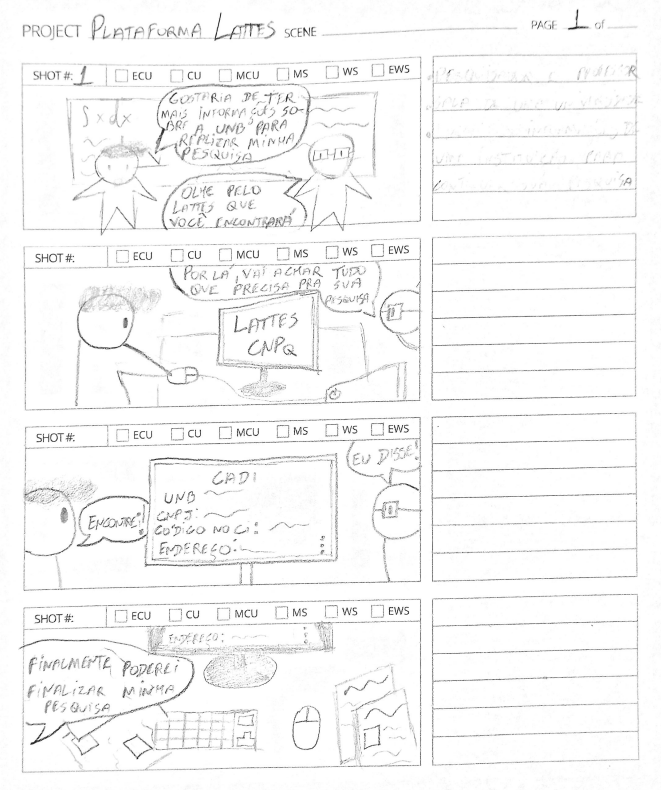 PROJECT PLATAFORMA LATTES SCENE
PAGE 1 of
SHOT #: 1 ECU CU MCU MS WS EWS
∫ x dx
GOSTARIA DE TER
MAIS INFORMAÇÕES SO-
BRE A UNB PARA
REALIZAR MINHA
PESQUISA
OLHE PELO
LATTES QUE
VOCÊ ENCONTRARÁ
PESQUISA
SHOT #: ECU CU MCU MS WS EWS
POR LÁ, VAI ACHAR TUDO
QUE PRECISA PRA SUA
PESQUISA
LATTES
CNPQ
SHOT #: ECU CU MCU MS WS EWS
EU DISSE!
CADI
UNB
CNPJ:
CÓDIGO NO CI:
ENDEREÇO:
ENCONTREI!
SHOT #: ECU CU MCU MS WS EWS
ENDEREÇO:
FINALMENTE PODEREI
FINALIZAR MINHA
PESQUISA